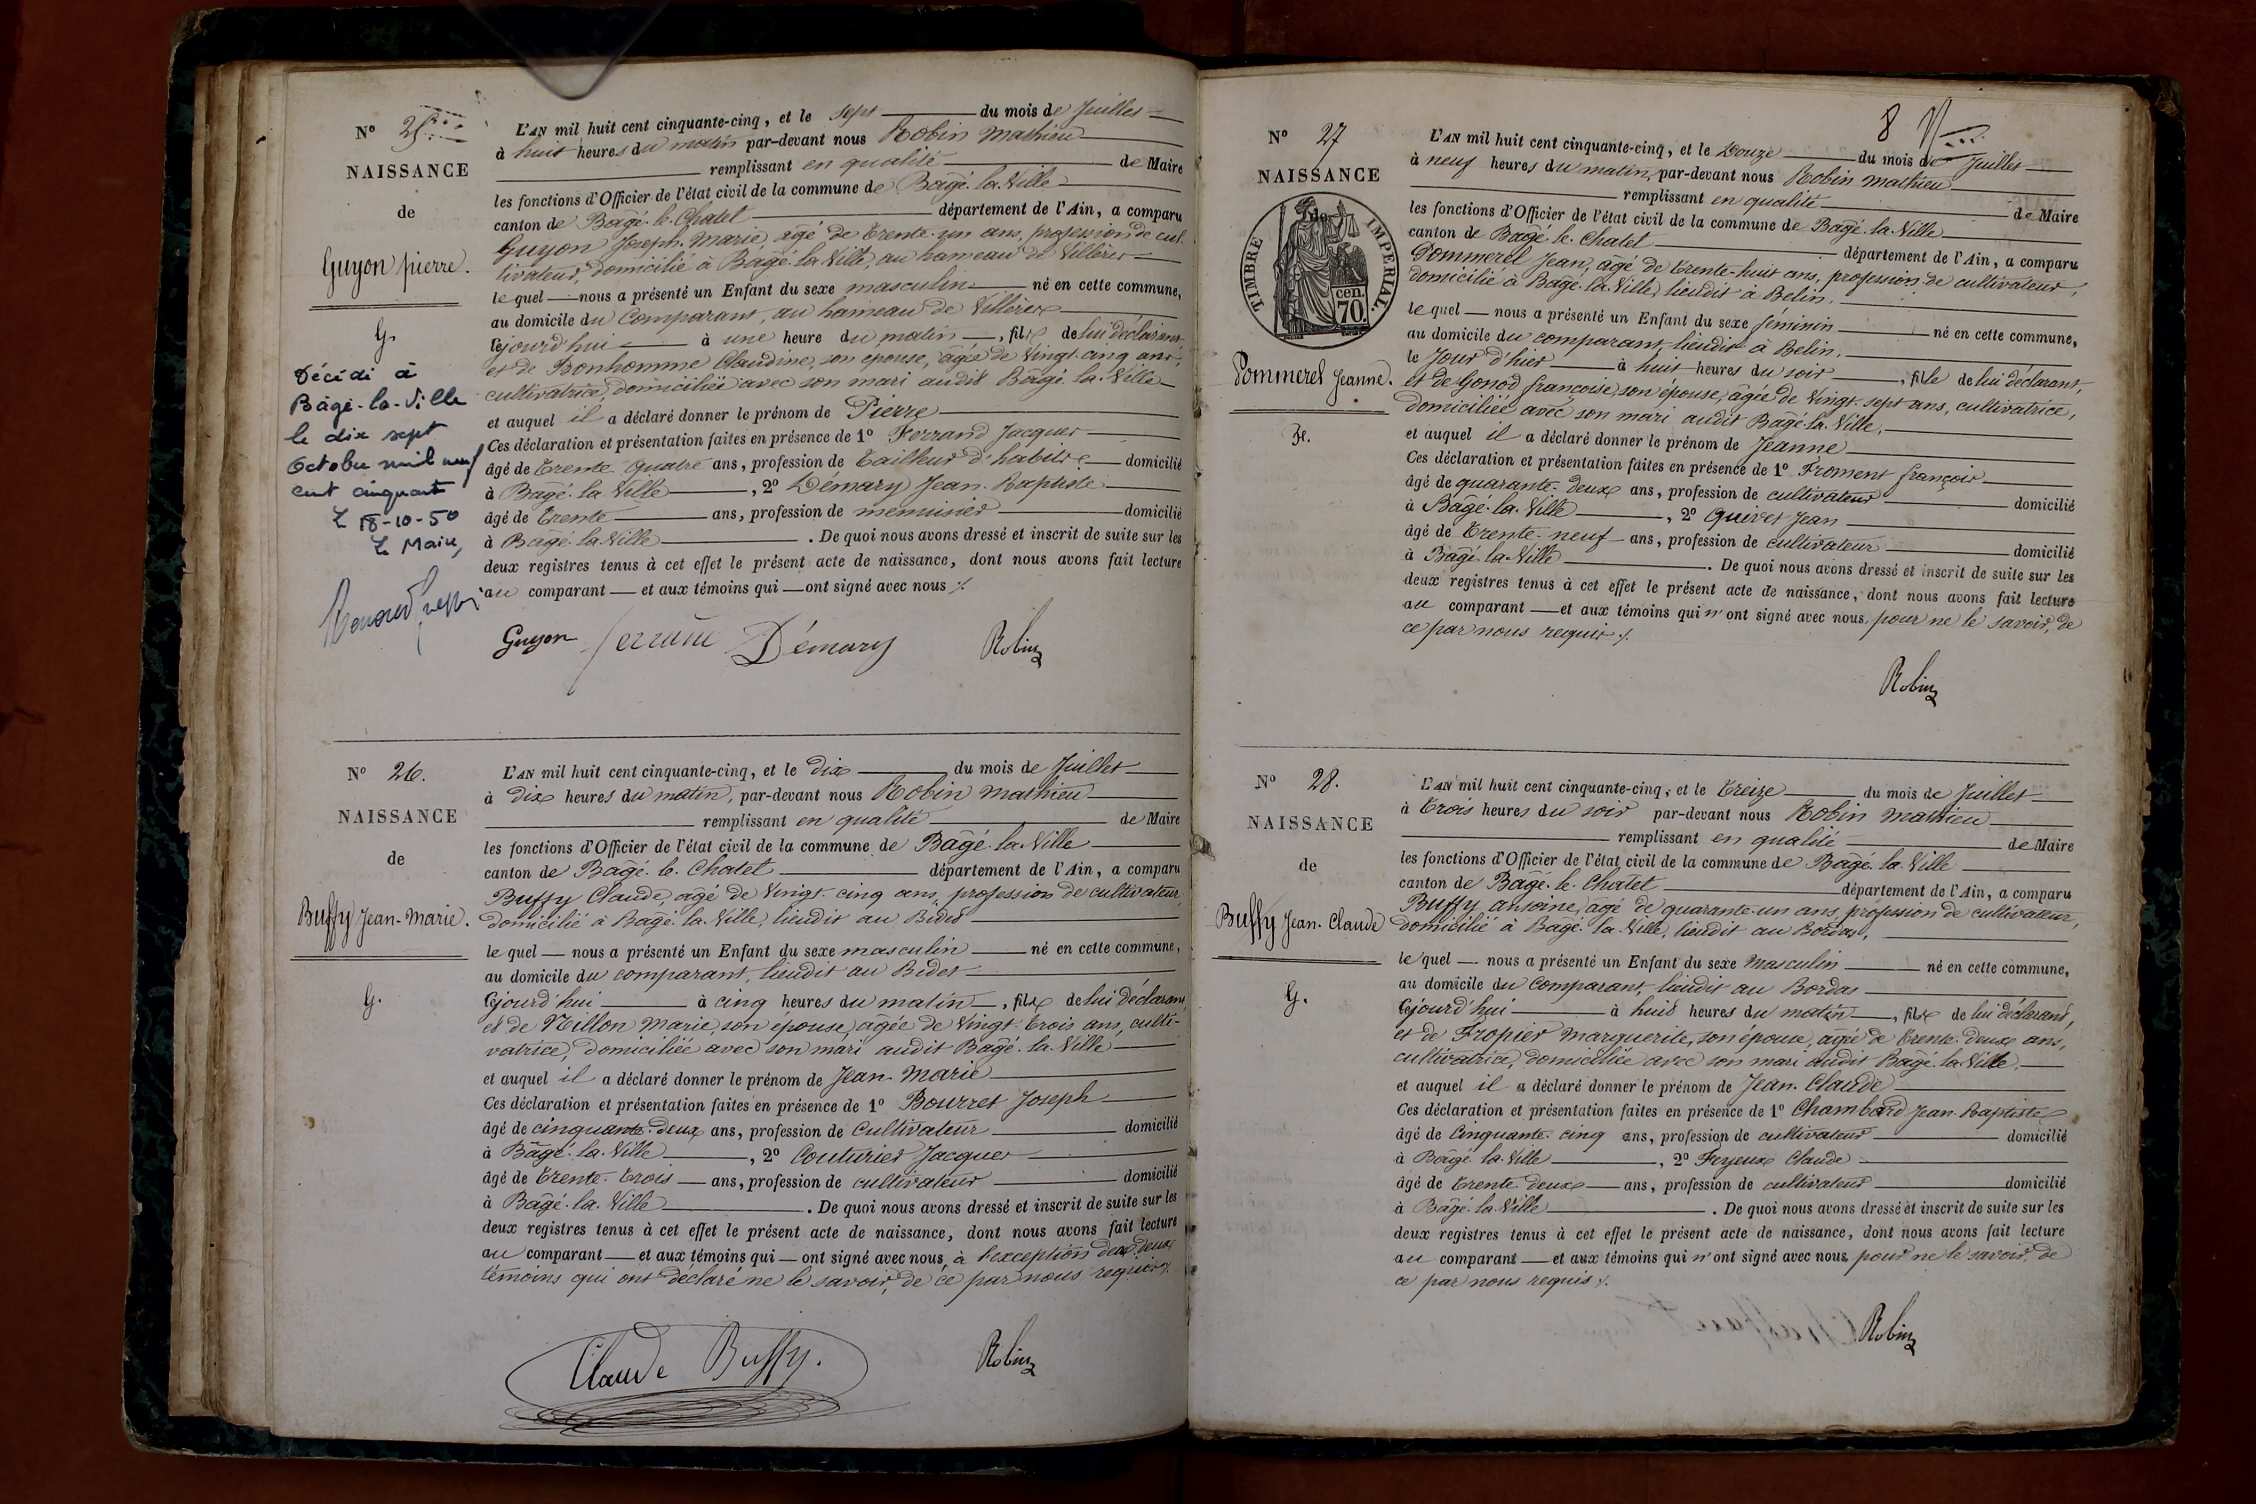 Nº 25
NAISSANCE
de
Guyon pierre.
G.
Décédé à
Bâgé-la-Ville
le dix sept
Octobre mil neuf
cent cinquante
Le 18-10-50
Le Maire,
L'AN mil huit cent cinquante-cinq, et le sept du mois de Juillet
à huit heures du matin par-devant nous Robin Mathieu
remplissant en qualité de Maire
les fonctions d'Officier de l'état civil de la commune de Bâgé-la-Ville
canton de Bâgé-le-Chatel département de l'Ain, a comparu
Guyon Joseph-Marie, âgé de trente-un ans, profession de cul-
tivateur, domicilié à Bâgé-la-Ville, au hameau de Villères
le quel nous a présenté un Enfant du sexe masculin né en cette commune,
au domicile du comparant, au hameau de Villères
cejourd'hui à une heure du matin, fils de lui déclarant
et de Bonhomme Claudine, son épouse, âgée de vingt-cinq ans,
cultivatrice, domiciliée avec son mari audit Bâgé-la-Ville
et auquel il a déclaré donner le prénom de Pierre
Ces déclaration et présentation faites en présence de 1º Ferrand Jacques
âgé de trente-quatre ans, profession de tailleur d'habits domicilié
à Bâgé-la-Ville, 2º Démary Jean-Baptiste
âgé de trente ans, profession de menuisier domicilié
à Bâgé-la-Ville. De quoi nous avons dressé et inscrit de suite sur les
deux registres tenus à cet effet le présent acte de naissance, dont nous avons fait lecture
au comparant et aux témoins qui ont signé avec nous ⁒
Guyon Ferrand Démary Robin
Nº 26.
NAISSANCE
de
Buffy Jean-Marie.
G.
L'AN mil huit cent cinquante-cinq, et le dix du mois de Juillet
à dix heures du matin, par-devant nous Robin Mathieu
remplissant en qualité de Maire
les fonctions d'Officier de l'état civil de la commune de Bâgé-la-Ville
canton de Bâgé-le-Chatel département de l'Ain, a comparu
Buffy Claude, âgé de vingt-cinq ans, profession de cultivateur,
domicilié à Bâgé-la-Ville, lieudit au Bidet
le quel nous a présenté un Enfant du sexe masculin né en cette commune,
au domicile du comparant, lieudit au Bidet
cejourd'hui à cinq heures du matin, fils de lui déclarant,
et de Nillon Marie, son épouse, âgée de vingt-trois ans, culti-
vatrice, domiciliée avec son mari audit Bâgé-la-Ville
et auquel il a déclaré donner le prénom de Jean-Marie
Ces déclaration et présentation faites en présence de 1º Bourret Joseph
âgé de cinquante-deux ans, profession de cultivateur domicilié
à Bâgé-la-Ville, 2º Couturier Jacques
âgé de trente-trois ans, profession de cultivateur domicilié
à Bâgé-la-Ville. De quoi nous avons dressé et inscrit de suite sur les
deux registres tenus à cet effet le présent acte de naissance, dont nous avons fait lecture
au comparant et aux témoins qui ont signé avec nous, à l'exception des deux
témoins qui ont déclaré ne le savoir, de ce par nous requis ⁒
Claude Buffy. Robin
8
Nº 27
NAISSANCE
de
TIMBRE IMPERIAL.
70. cen.
Pommerel Jeanne.
F.
L'AN mil huit cent cinquante-cinq, et le douze du mois de Juillet
à neuf heures du matin, par-devant nous Robin Mathieu
remplissant en qualité de Maire
les fonctions d'Officier de l'état civil de la commune de Bâgé-la-Ville
canton de Bâgé-le-Chatel département de l'Ain, a comparu
Pommerel Jean, âgé de trente-huit ans, profession de cultivateur,
domicilié à Bâgé-la-Ville, lieudit à Belin,
le quel nous a présenté un Enfant du sexe féminin né en cette commune,
au domicile du comparant, lieudit à Belin,
le jour d'hier à huit heures du soir, fille de lui déclarant,
et de Gonod françoise, son épouse, âgée de vingt-sept ans, cultivatrice,
domiciliée avec son mari audit Bâgé-la-Ville,
et auquel il a déclaré donner le prénom de Jeanne
Ces déclaration et présentation faites en présence de 1º Froment françois
âgé de quarante-deux ans, profession de cultivateur domicilié
à Bâgé-la-Ville, 2º Quivet Jean
âgé de trente-neuf ans, profession de cultivateur domicilié
à Bâgé-la-Ville. De quoi nous avons dressé et inscrit de suite sur les
deux registres tenus à cet effet le présent acte de naissance, dont nous avons fait lecture
au comparant et aux témoins qui n'ont signé avec nous, pour ne le savoir, de
ce par nous requis ⁒
Robin
Nº 28.
NAISSANCE
de
Buffy Jean-Claude
G.
L'AN mil huit cent cinquante-cinq, et le treize du mois de Juillet
à trois heures du soir par-devant nous Robin Mathieu
remplissant en qualité de Maire
les fonctions d'Officier de l'état civil de la commune de Bâgé-la-Ville
canton de Bâgé-le-Chatel département de l'Ain, a comparu
Buffy antoine, âgé de quarante-un ans, profession de cultivateur,
domicilié à Bâgé-la-Ville, lieudit au Bordas,
le quel nous a présenté un Enfant du sexe masculin né en cette commune,
au domicile du comparant, lieudit au Bordas
cejourd'hui à huit heures du matin, fils de lui déclarant,
et de Fropier Marguerite, son épouse, âgée de trente-deux ans,
cultivatrice, domiciliée avec son mari audit Bâgé-la-Ville,
et auquel il a déclaré donner le prénom de Jean-Claude
Ces déclaration et présentation faites en présence de 1º Chambard Jean-Baptiste
âgé de cinquante-cinq ans, profession de cultivateur domicilié
à Bâgé-la-Ville, 2º Feyeux Claude
âgé de trente-deux ans, profession de cultivateur domicilié
à Bâgé-la-Ville. De quoi nous avons dressé et inscrit de suite sur les
deux registres tenus à cet effet le présent acte de naissance, dont nous avons fait lecture
au comparant et aux témoins qui n'ont signé avec nous pour ne le savoir, de
ce par nous requis ⁒
Robin